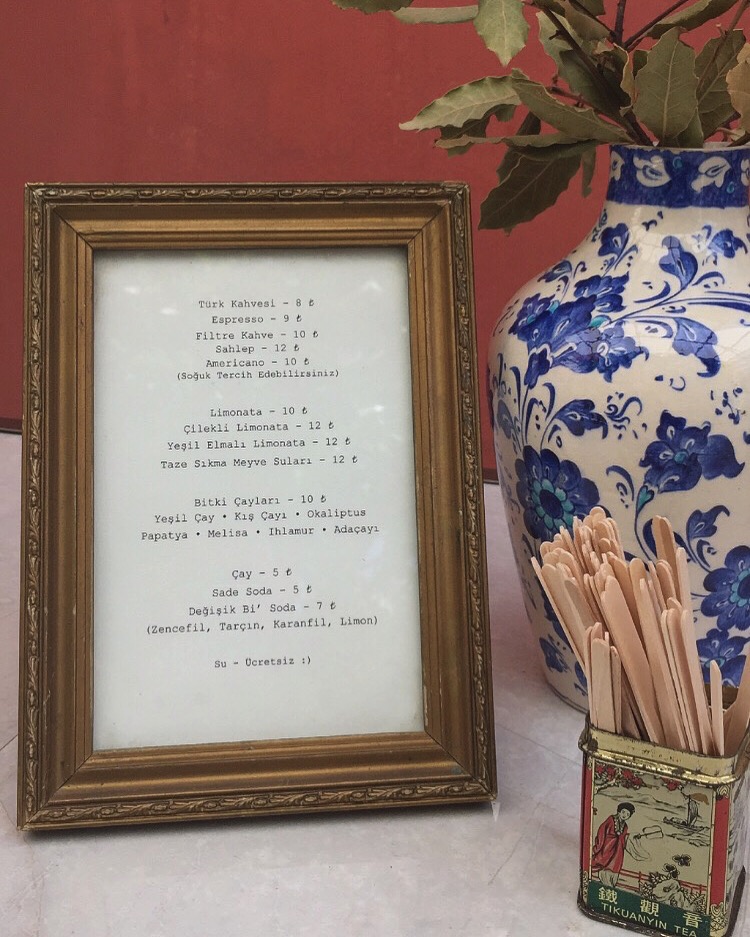 Türk Kahvesi - 8 ₺
Espresso - 9 ₺
Filtre Kahve - 10 ₺
Sahlep - 12 ₺
Americano - 10 ₺
(Soğuk Tercih Edebilirsiniz)
Limonata - 10 ₺
Çilekli Limonata - 12 ₺
Yeşil Elmalı Limonata - 12 ₺
Taze Sıkma Meyve Suları - 12 ₺
Bitki Çayları - 10 ₺
Yeşil Çay • Kış Çayı • Okaliptus
Papatya • Melisa • Ihlamur • Adaçayı
Çay - 5 ₺
Sade Soda - 5 ₺
Değişik Bi' Soda - 7 ₺
(Zencefil, Tarçın, Karanfil, Limon)
Su - Ücretsiz :)
鐵 觀 音
TIKUANYIN TEA